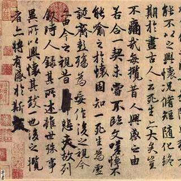 能不以之興懷況脩短隨化終
期於盡古人云死生亦大矣豈
不痛哉每攬昔人興感之由
若合一契未嘗不臨文嗟悼不
能喻之於懷固知一死生為虛
誕齊彭殤為妄作後之視今
亦由今之視昔悲夫故列
敘時人錄其所述雖世殊事
異所以興懷其致一也後之攬
者亦將有感於斯文